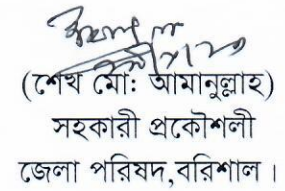 (শেখ মো: আমানুল্লাহ)
সহকারী প্রকৌশলী
জেলা পরিষদ,বরিশাল ।